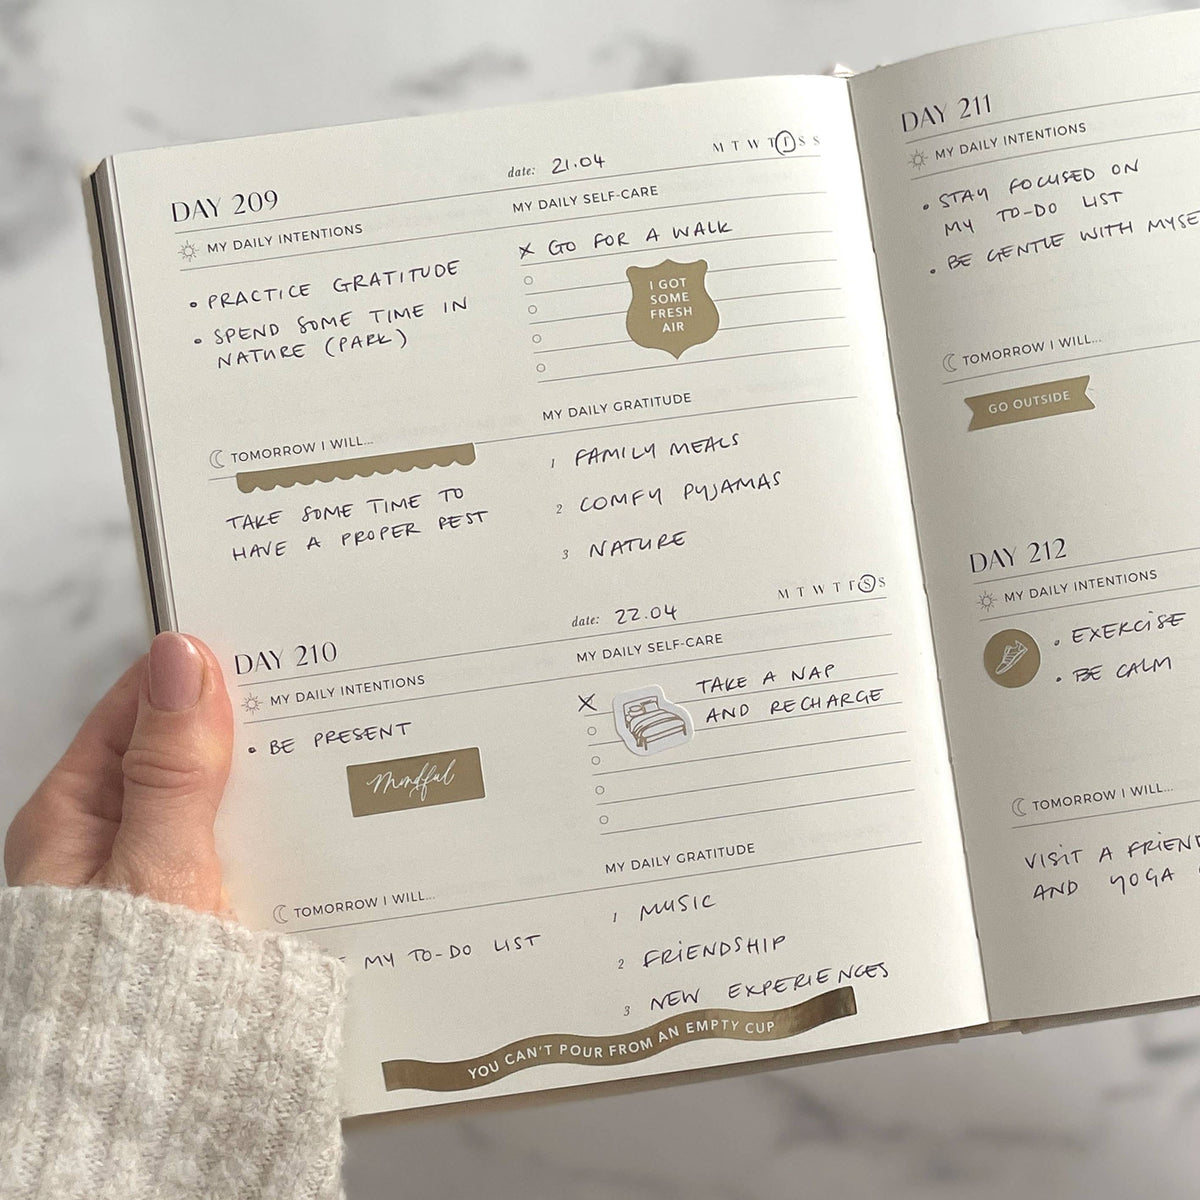 DAY 209
date: 21.04
M T W T F S S
MY DAILY INTENTIONS
• PRACTICE GRATITUDE
• SPEND SOME TIME IN
NATURE (PARK)
MY DAILY SELF-CARE
X GO FOR A WALK
I GOT
SOME
FRESH
AIR
TOMORROW I WILL...
TAKE SOME TIME TO
HAVE A PROPER REST
MY DAILY GRATITUDE
1 FAMILY MEALS
2 COMFY PYJAMAS
3 NATURE
DAY 210
date: 22.04
M T W T F S S
MY DAILY INTENTIONS
• BE PRESENT
Mindful
MY DAILY SELF-CARE
X TAKE A NAP
AND RECHARGE
TOMORROW I WILL...
MY TO-DO LIST
MY DAILY GRATITUDE
1 MUSIC
2 FRIENDSHIP
3 NEW EXPERIENCES
YOU CAN'T POUR FROM AN EMPTY CUP
DAY 211
MY DAILY INTENTIONS
• STAY FOCUSED ON
MY TO-DO LIST
• BE GENTLE WITH MYSE
TOMORROW I WILL...
GO OUTSIDE
DAY 212
MY DAILY INTENTIONS
• EXERCISE
• BE CALM
TOMORROW I WILL...
VISIT A FRIEND
AND YOGA